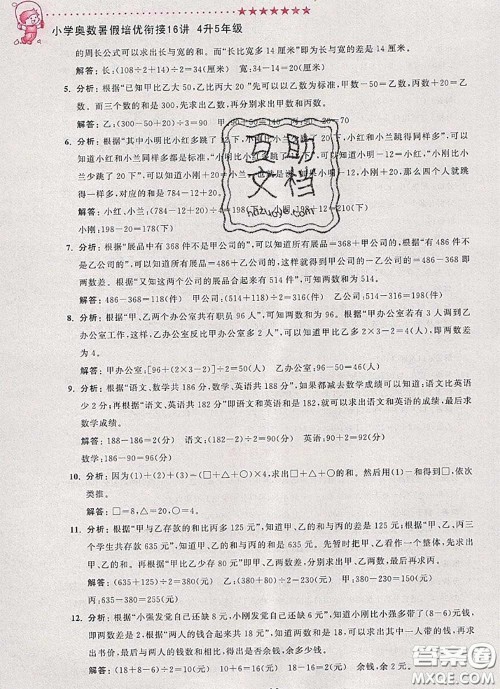 小学奥数暑假培优衔接16讲 4升5年级
的周长公式可以求出长与宽的和。而“长比宽多14厘米”即为长与宽的差是14厘米。
解答:长:(108÷2+14)÷2=34(厘米) 宽:34-14=20(厘米)
5. 分析:根据“已知甲比乙大50,乙比丙大20”可以知道甲数-50=乙数,丙数+20=乙
数。而三个数的和是300,先求出乙数,再分别求出甲数和丙数。
解答:乙:(300-50+20)÷3=90 甲:90+50=140 丙:90-20=70
6. 分析:根据“其中小明比小红多跳了12下,小红和小兰跳得同样多”,可以
知道小红和小兰跳得同样多,根据“小刚比小兰少跳了20下”,可以知道小明-12=小
红,小红=小兰,小刚+20=小兰,可以知道小明-12=小红=小兰=小刚+20,那么四个人就
是小红的4倍,总和为(784-12+20)下。
解答:小红、小兰:(784-12+20)÷4=198(下) 小明:198+12=210(下)
小刚:198-20=178(下)
7. 分析:根据“展品中有368件不是甲公司的”,可以知道所有展品=368+甲公司,“有486件
不是乙公司的”,可以知道所有展品=486+乙公司,这样就得到368+甲公司=486+乙公
司,即两数差。根据“又知这两个公司的展品合起来有514件”,可以知道两数和。
解答:486-368=118(件) 甲公司:(514+118)÷2=316(件)
乙公司:514-316=198(件)
8. 分析:根据“甲、乙办公室共有96人”,可以知道两数和。根据“甲办公室若有3人调到乙
办公室工作,这样一来,乙办公室反比甲办公室多2人”,可以知道甲比乙多2×3-2,即
两数差为4。
解答:甲办公室:[96+(2×3-2)]÷2=50(人) 乙办公室:96-50=46(人)
9. 分析:根据“语文、数学共188分,数学、英语共186分”,如果都减去数学成绩可以知道英语比语文
少2分;再根据“语文、英语共182分”即语文和英语和,我们就知道语文和英语,最后求出
数学成绩。
解答:188-186=2(分) 语文:(182+2)÷2=92(分) 英语:92-2=90(分)
数学:186-90=96(分)
10. 分析:因为(1)+(2)=(□+△+△○)×4。所以可以求出□+△+○的和。然后用(1)-和得到□,依次
类推。
解答:□=8,△=4,○=2。
11. 分析:根据“甲与乙存款的和比丙多125元”,可以知道甲、乙的和与丙的差。根据“甲、乙、丙三
个同学共存款635元”,可以知道甲、乙的和与丙的和。这样可以知道甲、乙的和为(635+
125)÷2=380元。再根据“甲比乙少存80元”即两数差,可以分别求出甲数和乙数。
解答:(635+125)÷2=380(元) 乙:(380+80)÷2=230(元) 甲:230-80=150(元)
丙:635-380=255(元)
12. 分析:根据“小强发觉自己还缺8元,小刚发觉自己还缺6元”,可以知道小刚比小强多带了(8-6)元钱,
即两数差。根据“两人的钱合起来共付18元”,可以分别求出其中一人带的钱,再求
出本子的价钱。根据两人的钱数和跟本子的价钱的和,得出是否余钱,余多少钱。
解答:(18+8-6)÷2=10(元) 10+6=16(元) 18-16=2(元) 余钱,余2元。
互助
文档
答案圈
MXQE.COM